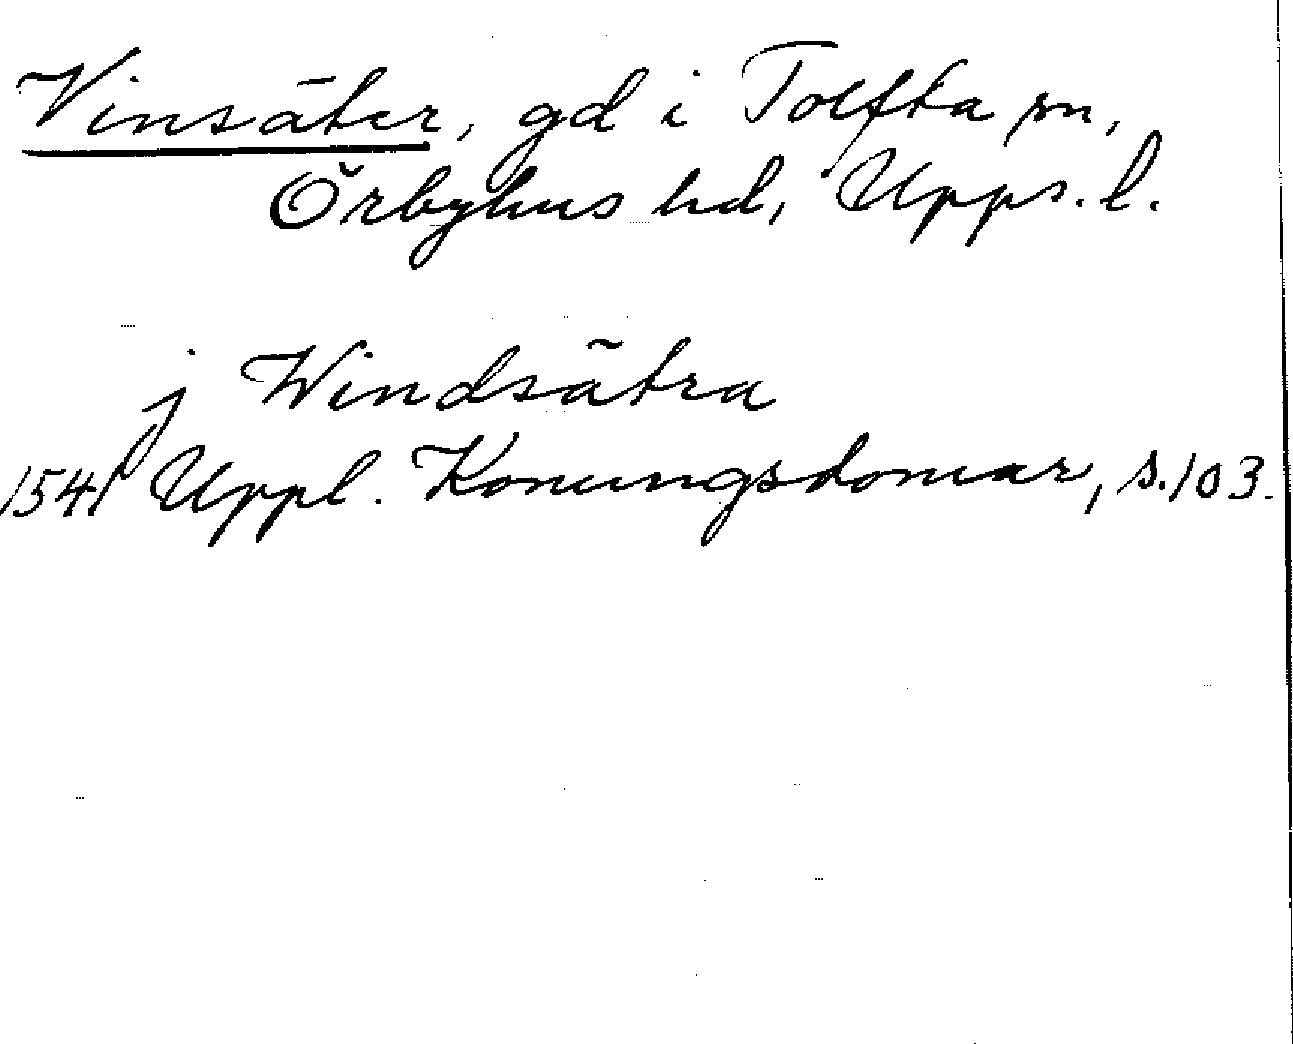 Vinsäter, gd i Tolfta sn,
Örbyhus hd, Upps. l.
j Windsätra
1541 Uppl. Konungsdomar, s. 103.